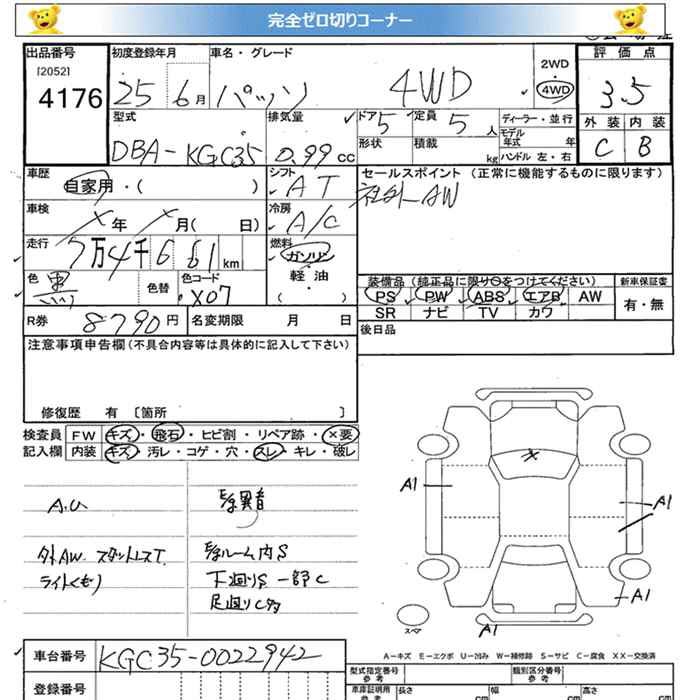 完全ゼロ切りコーナー
出品番号 初度登録年月 車名・グレード 2WD 評価点
[2052]
4176 25 6月 パッソ 4WD 4WD 3.5
型式 排気量 ドア 5 定員 5人 ディーラー・並行 外装 内装
DBA-KGC35 0.99cc 形状 積載 kg モデル年式 年 C B
ハンドル 左・右
車歴 シフト セールスポイント (正常に機能するものに限ります)
自家用・( ) AT 社外AW
車検 冷房
×年 月( 日) A/C
走行 燃料
7万4千661km ガソリン
色 黒 色替 色コード 軽油 装備品 (純正品に限り○をつけてください) 新車保証書
X07 ( ・ ) PS PW ABS エアB AW 有・無
SR ナビ TV カワ
R券 8790円 名変期限 月 日 後日品
注意事項申告欄(不具合内容等は具体的に記入して下さい)
修復歴 有 [箇所 ]
検査員 FW キズ・飛石・ヒビ割・リペア跡・×要
記入欄 内装 キズ・汚レ・コゲ・穴・スレ・キレ・破レ
×
A1 A1
A.U
外AW スタットレスT. ルーム内S
ライトくもり 下廻りS 一部C
足廻りC
A1
スペア A1
A-キズ E-エクボ U-凹み W-補修跡 S-サビ C-腐食 XX-交換済
車台番号 KGC35-0022942
型式指定番号 参考 類別区分番号 参考
登録番号 車庫証明用 参考 長さ cm 幅 cm 高さ cm